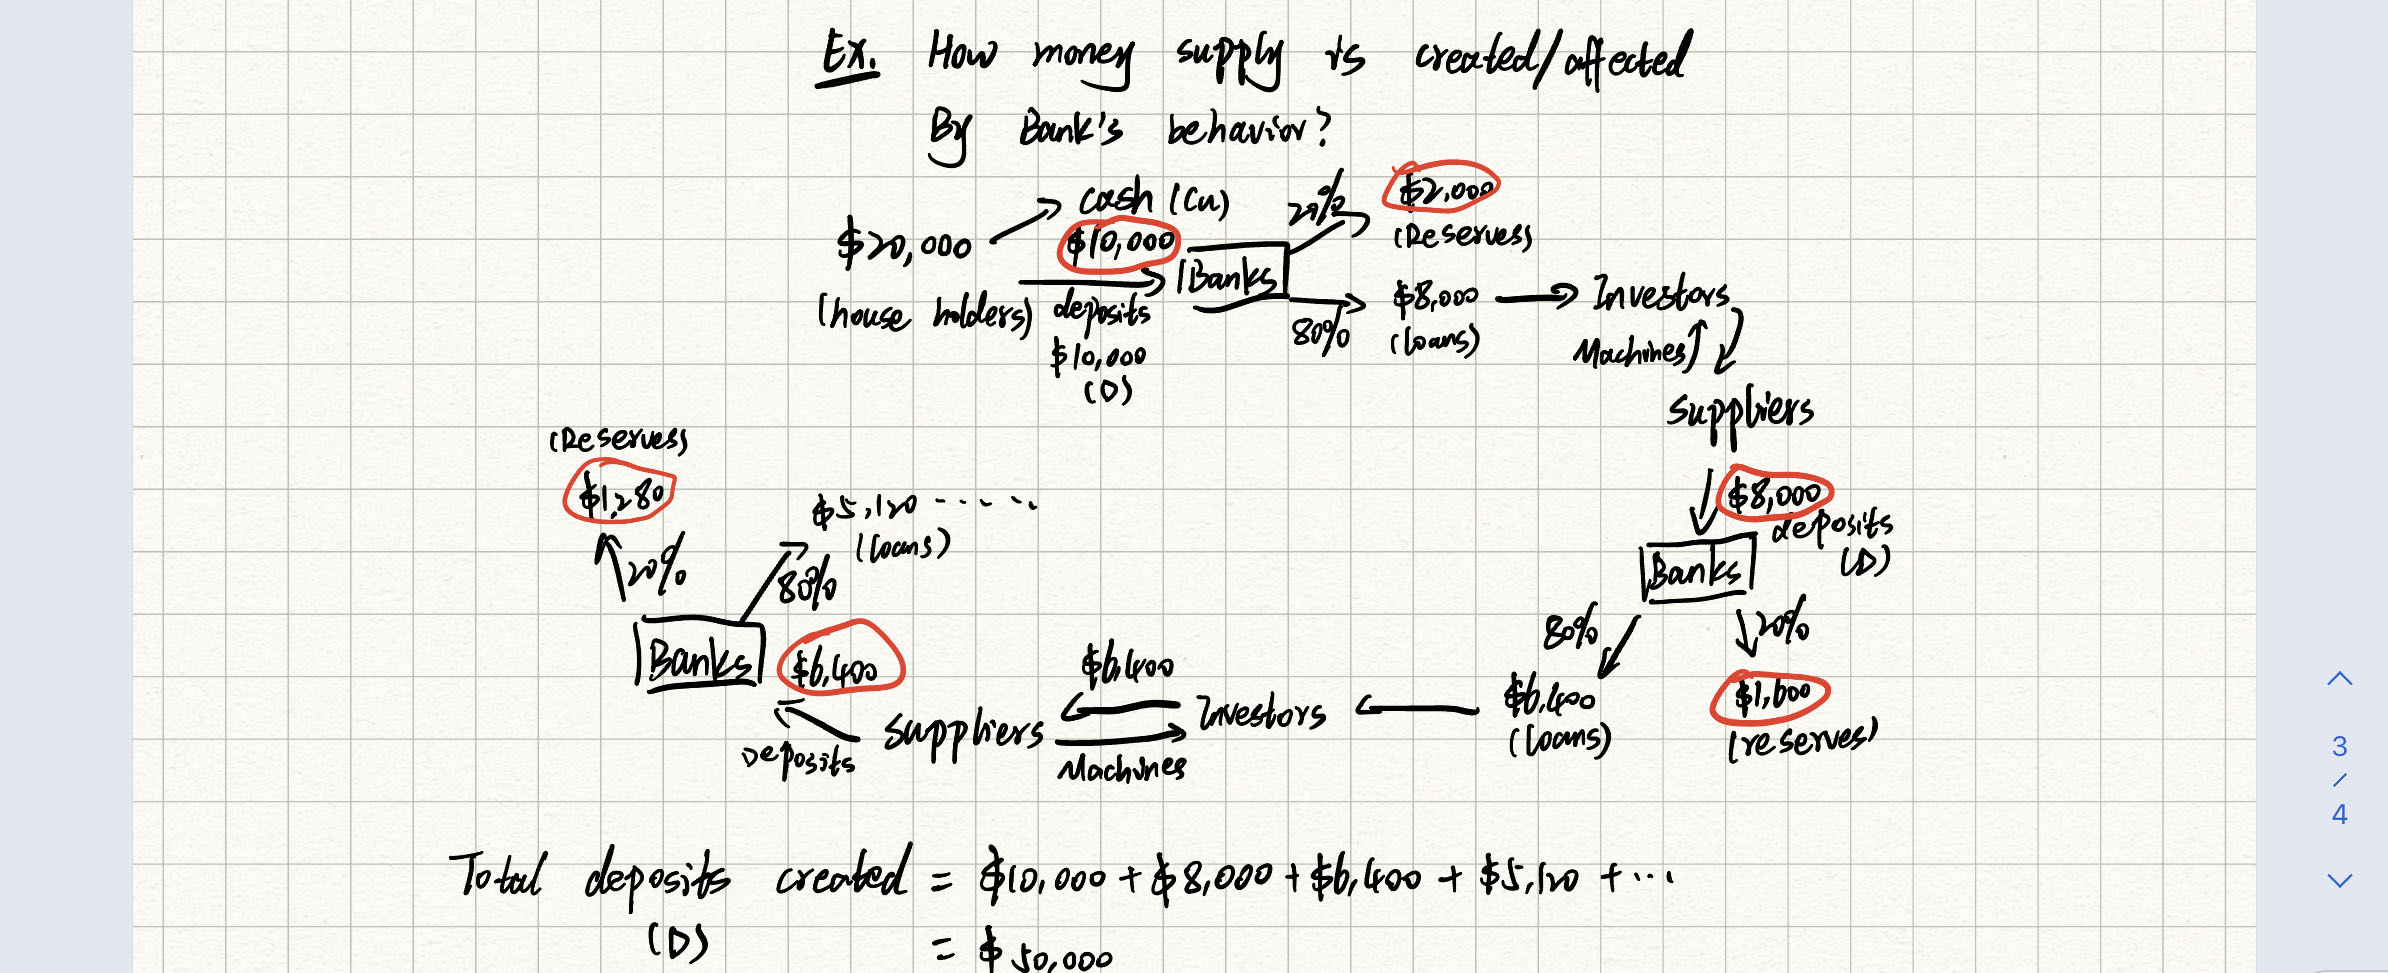 Ex. How money supply is created/affected
By Bank's behavior?
cash (Cu)
$10,000
$20,000
(house holders)
deposits
$10,000
(D)
Banks
20%
$2,000
(Reserves)
80%
$8,000
(loans)
Investors
Machines
suppliers
$8,000
deposits
(D)
Banks
20%
$1,600
(reserves)
80%
$6,400
(loans)
Investors
$6,400
Machines
suppliers
Deposits
$6,400
Banks
20%
$1,280
(Reserves)
80%
$5,120 ......
(loans)
Total deposits created = $10,000 + $8,000 + $6,400 + $5,120 + ...
(D)
= $50,000
3
/
4